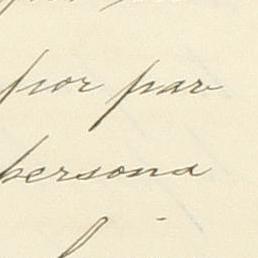 por par
persona